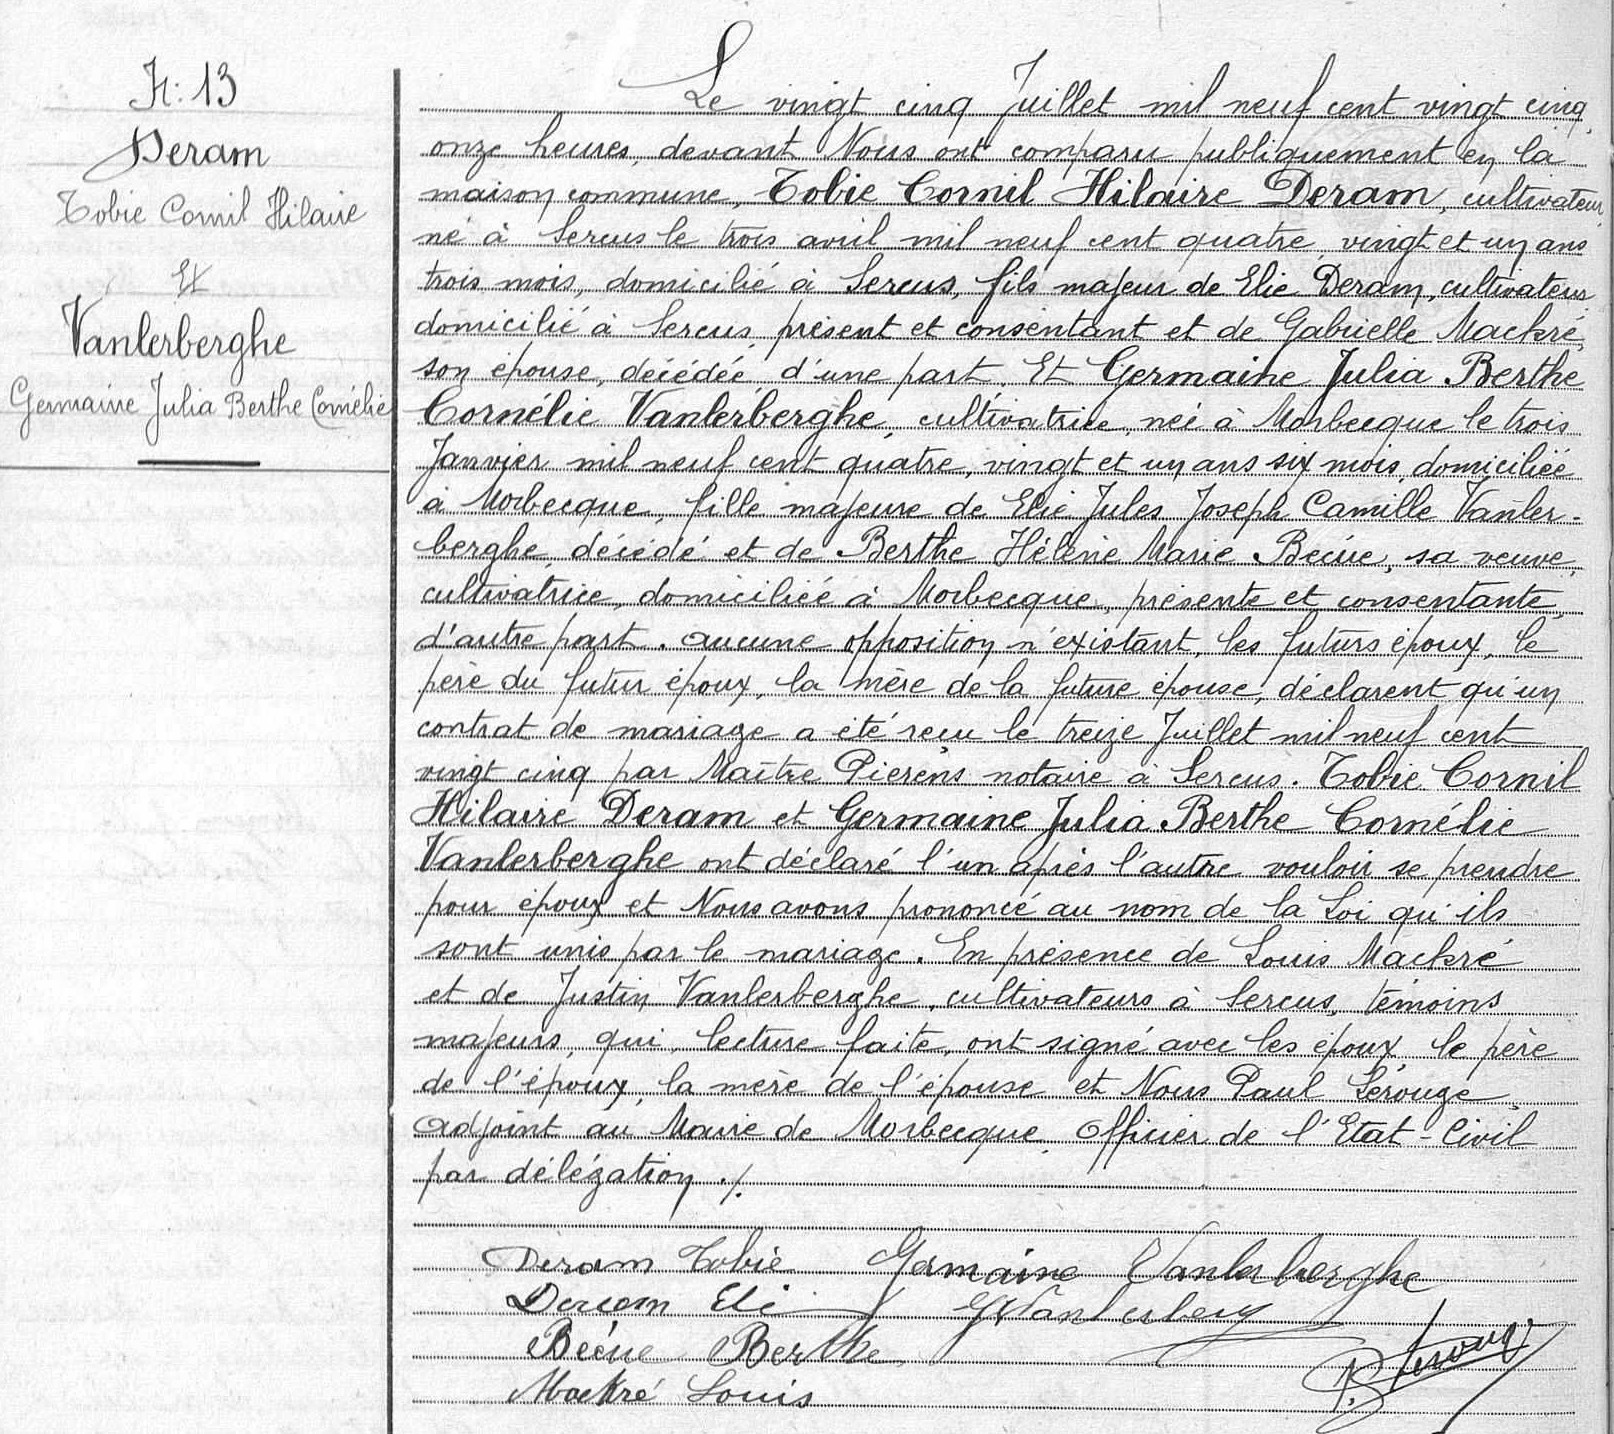 N: 13
Deram
Tobie Cornil Hilaire
Et
Vanlerberghe
Germaine Julia Berthe Cornélie
Le vingt cinq Juillet mil neuf cent vingt cinq,
onze heures, devant Nous ont comparu publiquement en la
maison commune, Tobie Cornil Hilaire Deram, cultivateur,
né à Sercus le trois avril mil neuf cent quatre, vingt et un ans
trois mois, domicilié à Sercus, fils majeur de Elie Deram, cultivateur
domicilié à Sercus, présent et consentant et de Gabrielle Mackré,
son épouse, décédée, d'une part. Et Germaine Julia Berthe
Cornélie Vanlerberghe, cultivatrice, née à Morbecque le trois
Janvier mil neuf cent quatre, vingt et un ans six mois, domiciliée
à Morbecque, fille majeure de Elie Jules Joseph Camille Vanler-
berghe, décédé et de Berthe Hélène Marie Bécue, sa veuve,
cultivatrice, domiciliée à Morbecque, présente et consentante,
d'autre part. aucune opposition n'existant, les futurs époux, le
père du futur époux, la mère de la future épouse, déclarent qu'un
contrat de mariage a été reçu le treize Juillet mil neuf cent
vingt cinq par Maître Pierens notaire à Sercus. Tobie Cornil
Hilaire Deram et Germaine Julia Berthe Cornélie
Vanlerberghe ont déclaré l'un après l'autre vouloir se prendre
pour époux et Nous avons prononcé au nom de la Loi qu'ils
sont unis par le mariage. En présence de Louis Mackré
et de Justin Vanlerberghe, cultivateurs à Sercus, témoins
majeurs, qui, lecture faite, ont signé avec les époux, le père
de l'époux, la mère de l'épouse et Nous Paul Lerouge,
adjoint au Maire de Morbecque, Officier de l'Etat-Civil
par délégation ./.
Deram Tobie Germaine Vanlerberghe
Deram Elie Vanlerberg
Bécue Berthe
Mackré Louis
P. Lerouge